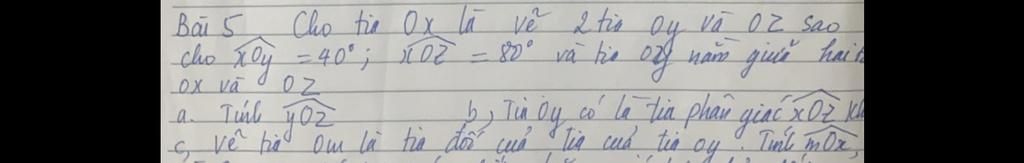 Bài 5 Cho tia Ox là vẽ 2 tia Oy và OZ sao
cho xOy = 40°; xOZ = 80° và tia Oy nằm giữa hai
OX và OZ
a. Tính yOZ b, Tia Oy có là tia phân giác xOZ
c, vẽ tia Om là tia đối cuả tia cuả tia oy. Tính mOx,